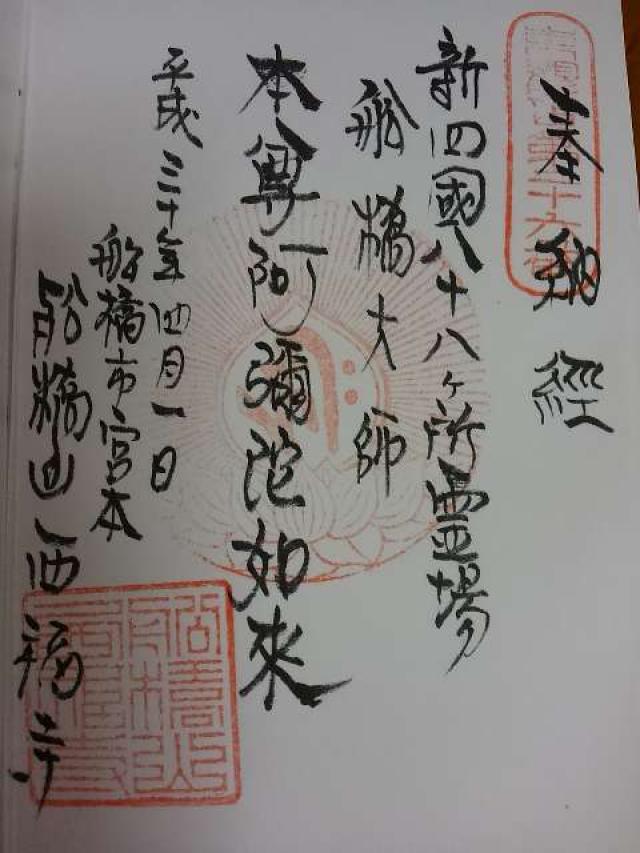 奉納經
新四國八十八ヶ所霊場
船橋大師
本尊阿彌陀如來
平成三十年四月一日
船橋市宮本
船橋山西福寺